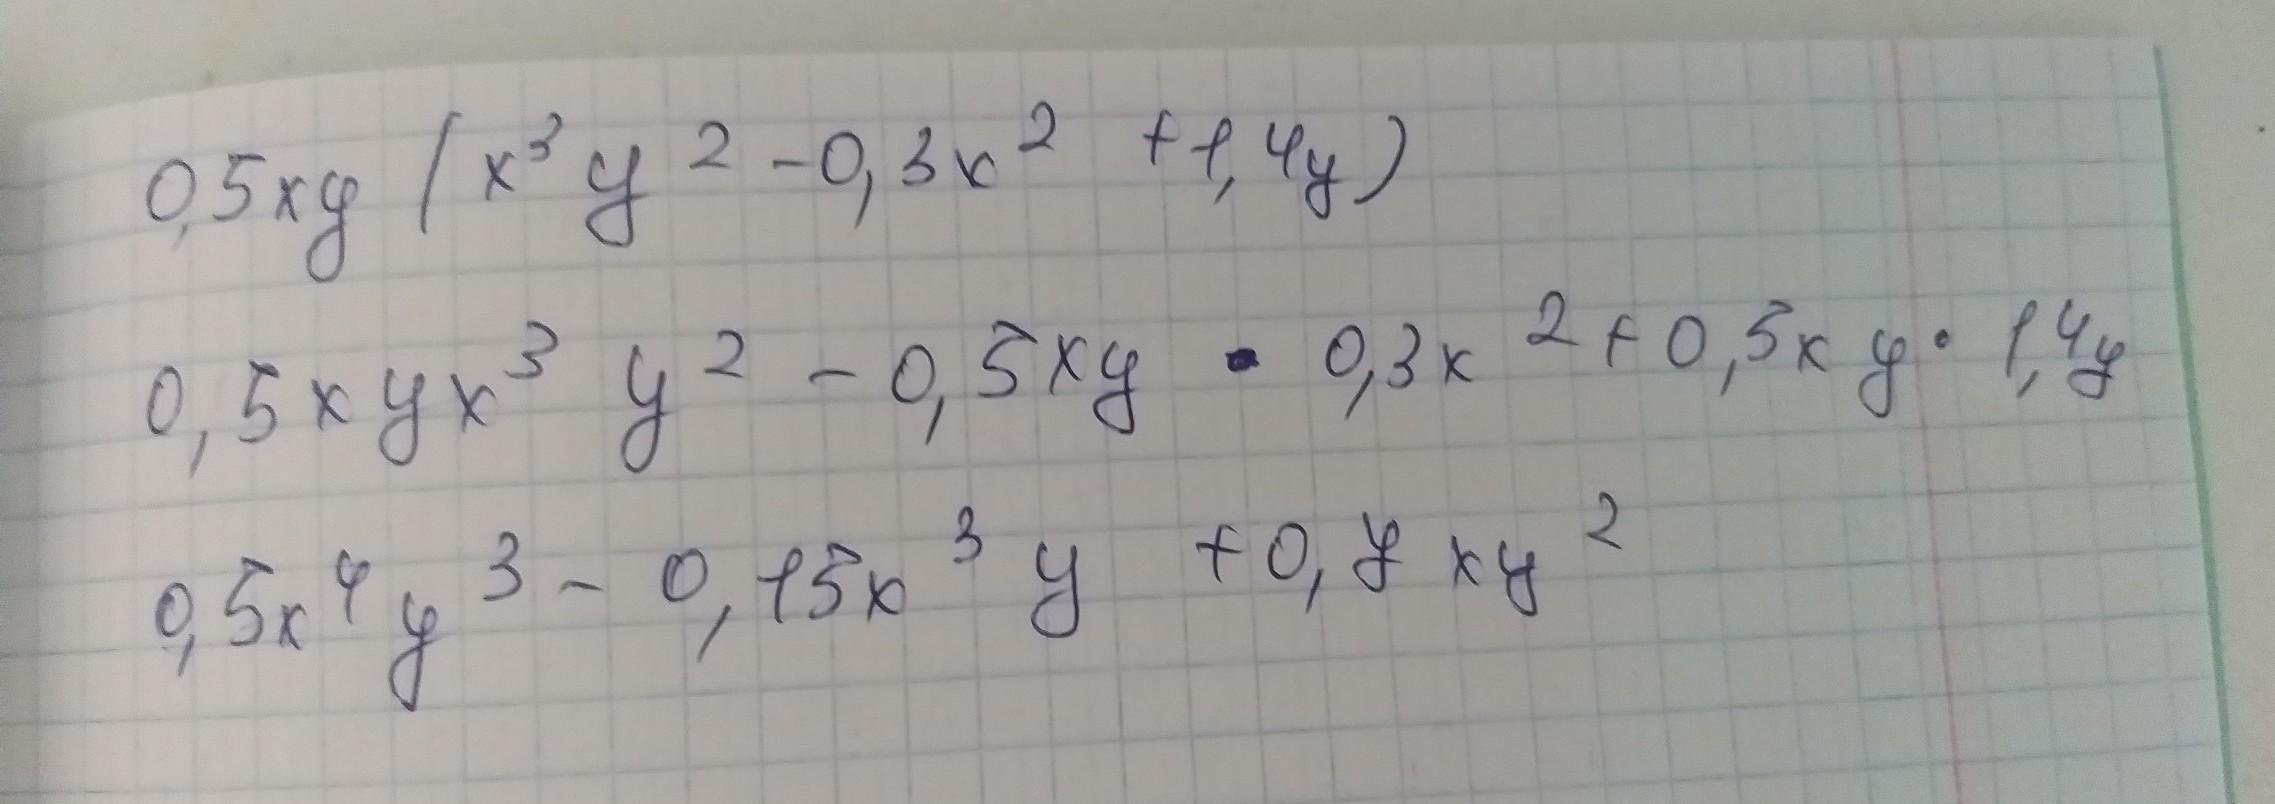 0,5xy (x³y² - 0,3x² + 1,4y)
0,5xyx³y² - 0,5xy · 0,3x² + 0,5xy · 1,4y
0,5x⁴y³ - 0,15x³y + 0,7xy²